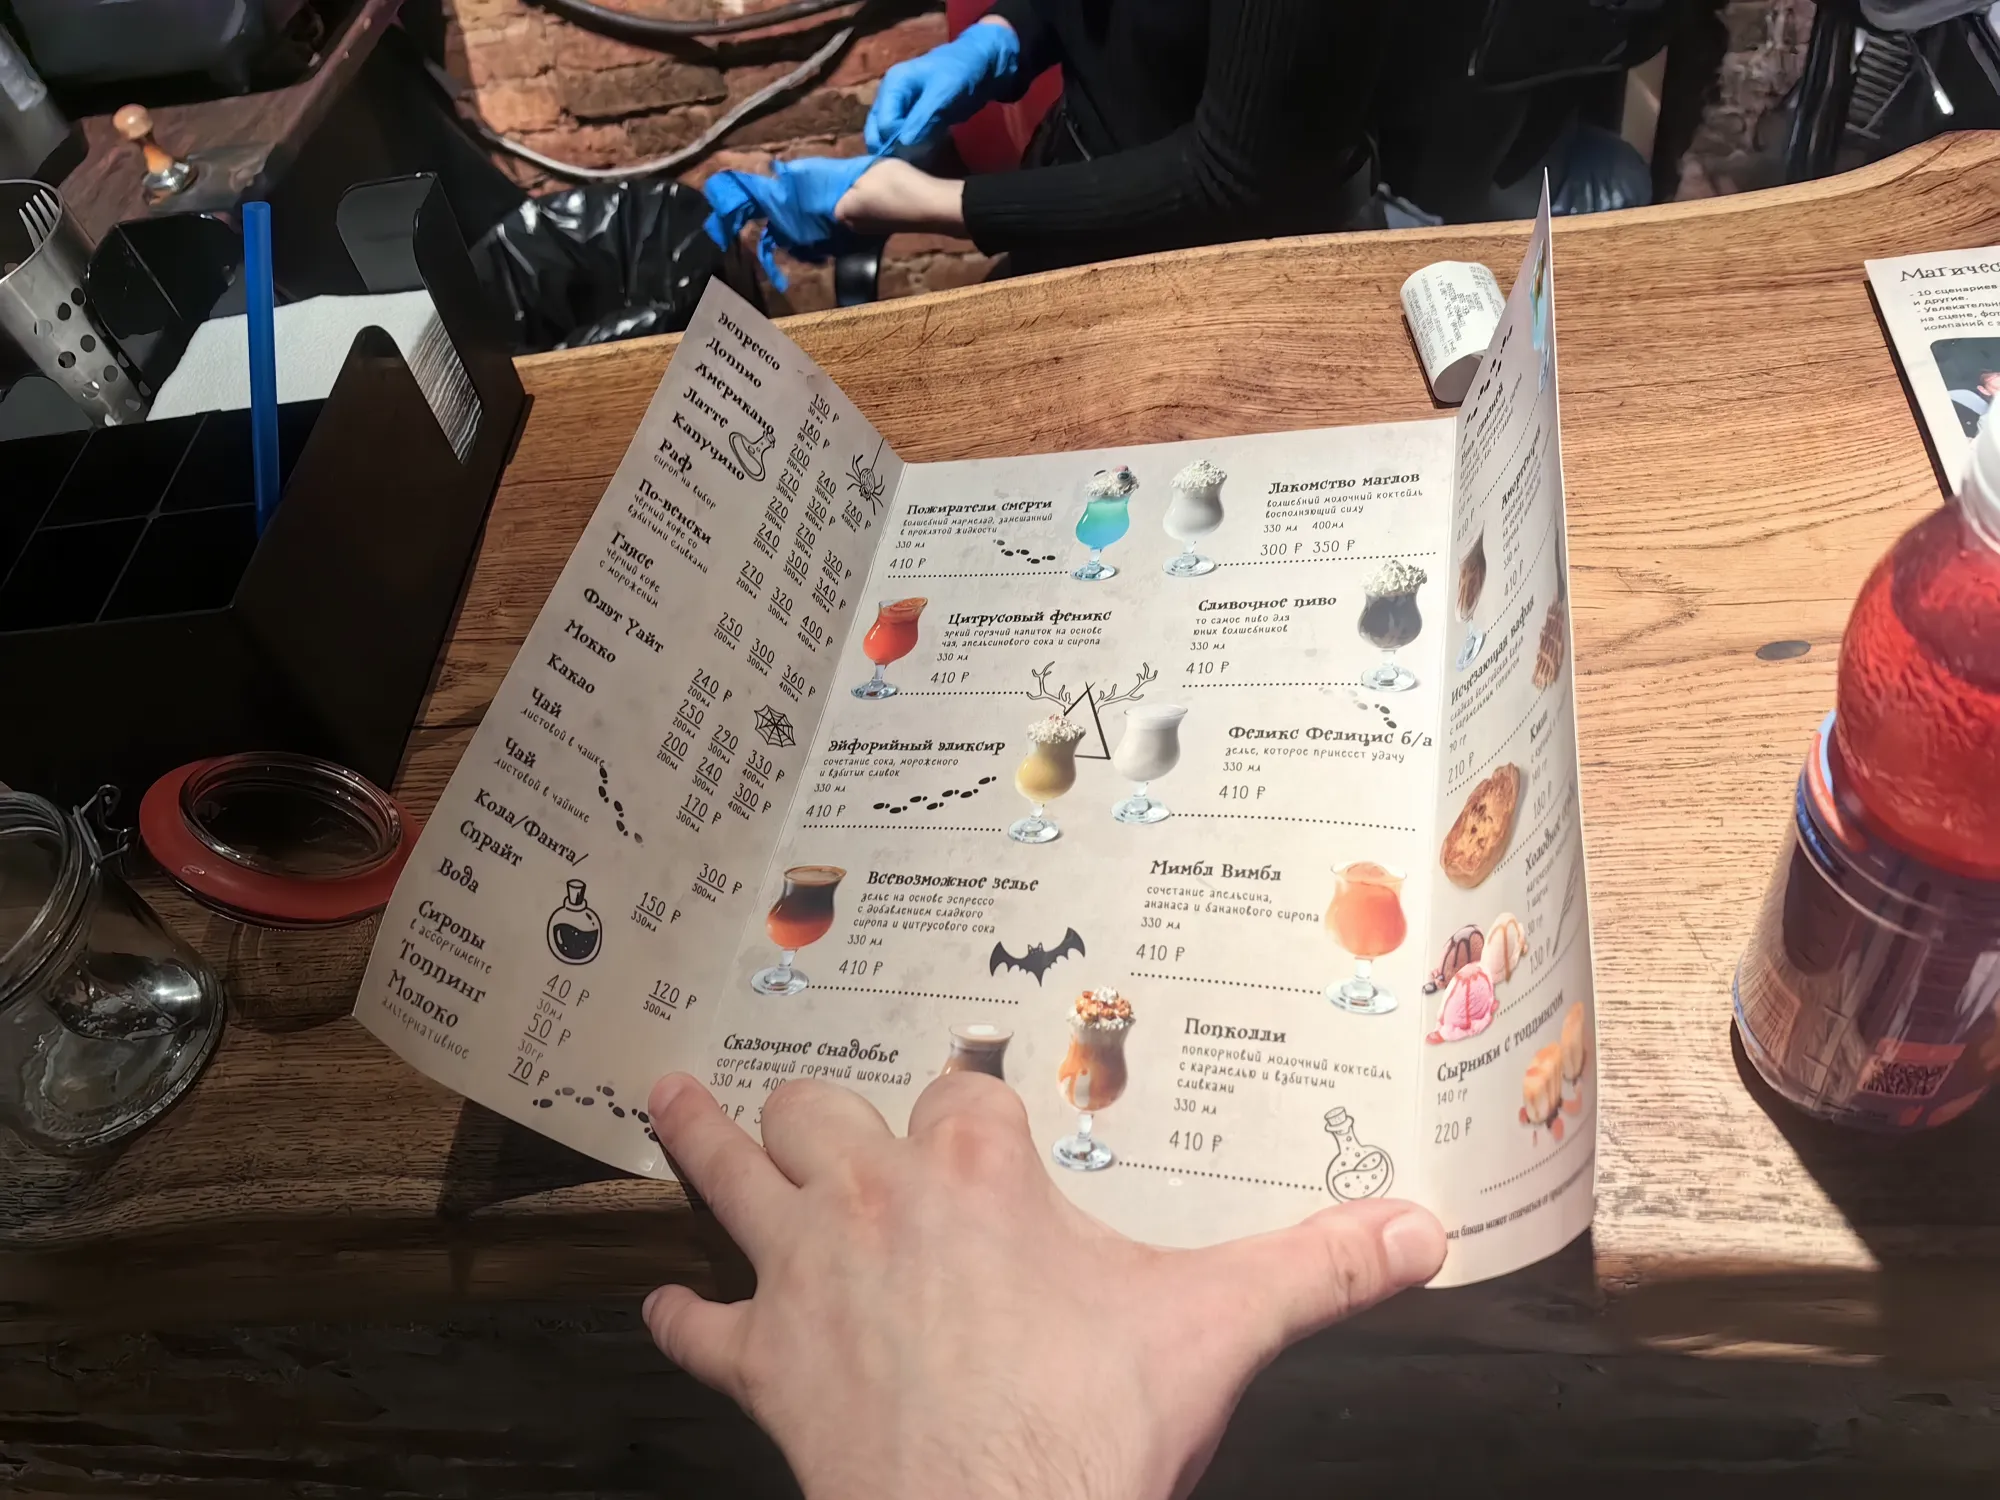 Эспрессо
150 ₽
30 мл
Доппио
180 ₽
60 мл
Американо
200
200мл
240
300мл
280 ₽
400мл
Латте
270
300мл
320 ₽
400мл
Капучино
220
200мл
270
300мл
320 ₽
400мл
Раф
сироп на выбор
240
200мл
300
300мл
340 ₽
400мл
По-венски
чёрный кофе со
взбитыми сливками
270
200мл
320
300мл
400 ₽
400мл
Глясе
чёрный кофе
с мороженым
250
200мл
300
300мл
360 ₽
400мл
Флэт Уайт
240 ₽
200мл
Мокко
250
200мл
290
300мл
330 ₽
400мл
Какао
200
200мл
240
300мл
300 ₽
400мл
Чай
листовой в чашке
170 ₽
300мл
Чай
листовой в чайнике
300 ₽
500мл
Кола/Фанта/
Спрайт
150 ₽
330мл
Вода
120 ₽
500мл
Сиропы
в ассортименте
40 ₽
30мл
Топпинг
50 ₽
30гр
Молоко
альтернативное
70 ₽
Пожиратели смерти
волшебный мармелад, замешанный
в проклятой жидкости
330 мл
410 ₽
Лакомство маглов
волшебный молочный коктейль
восполняющий силу
330 мл 400мл
300 ₽ 350 ₽
Цитрусовый феникс
яркий горячий напиток на основе
чая, апельсинового сока и сиропа
330 мл
410 ₽
Сливочное пиво
то самое пиво для
юных волшебников
330 мл
410 ₽
Эйфорийный эликсир
сочетание сока, мороженого
и взбитых сливок
330 мл
410 ₽
Феликс Фелицис б/а
зелье, которое принесет удачу
330 мл
410 ₽
Всевозможное зелье
зелье на основе эспрессо
с добавлением сладкого
сиропа и цитрусового сока
330 мл
410 ₽
Мимбл Вимбл
сочетание апельсина,
ананаса и бананового сиропа
330 мл
410 ₽
Сказочное снадобье
согревающий горячий шоколад
330 мл 400
Попколли
попкорновый молочный коктейль
с карамелью и взбитыми
сливками
330 мл
410 ₽
410 ₽
Исчезающая вафля
90 гр
210 ₽
180 ₽
1 шарик
130 ₽
Сырники с топпингом
140 гр
220 ₽
вид блюда может отличаться от
Магичес
- 10 сценариев
и другие.
- Увлекательн
на сцене, фот
компаний с